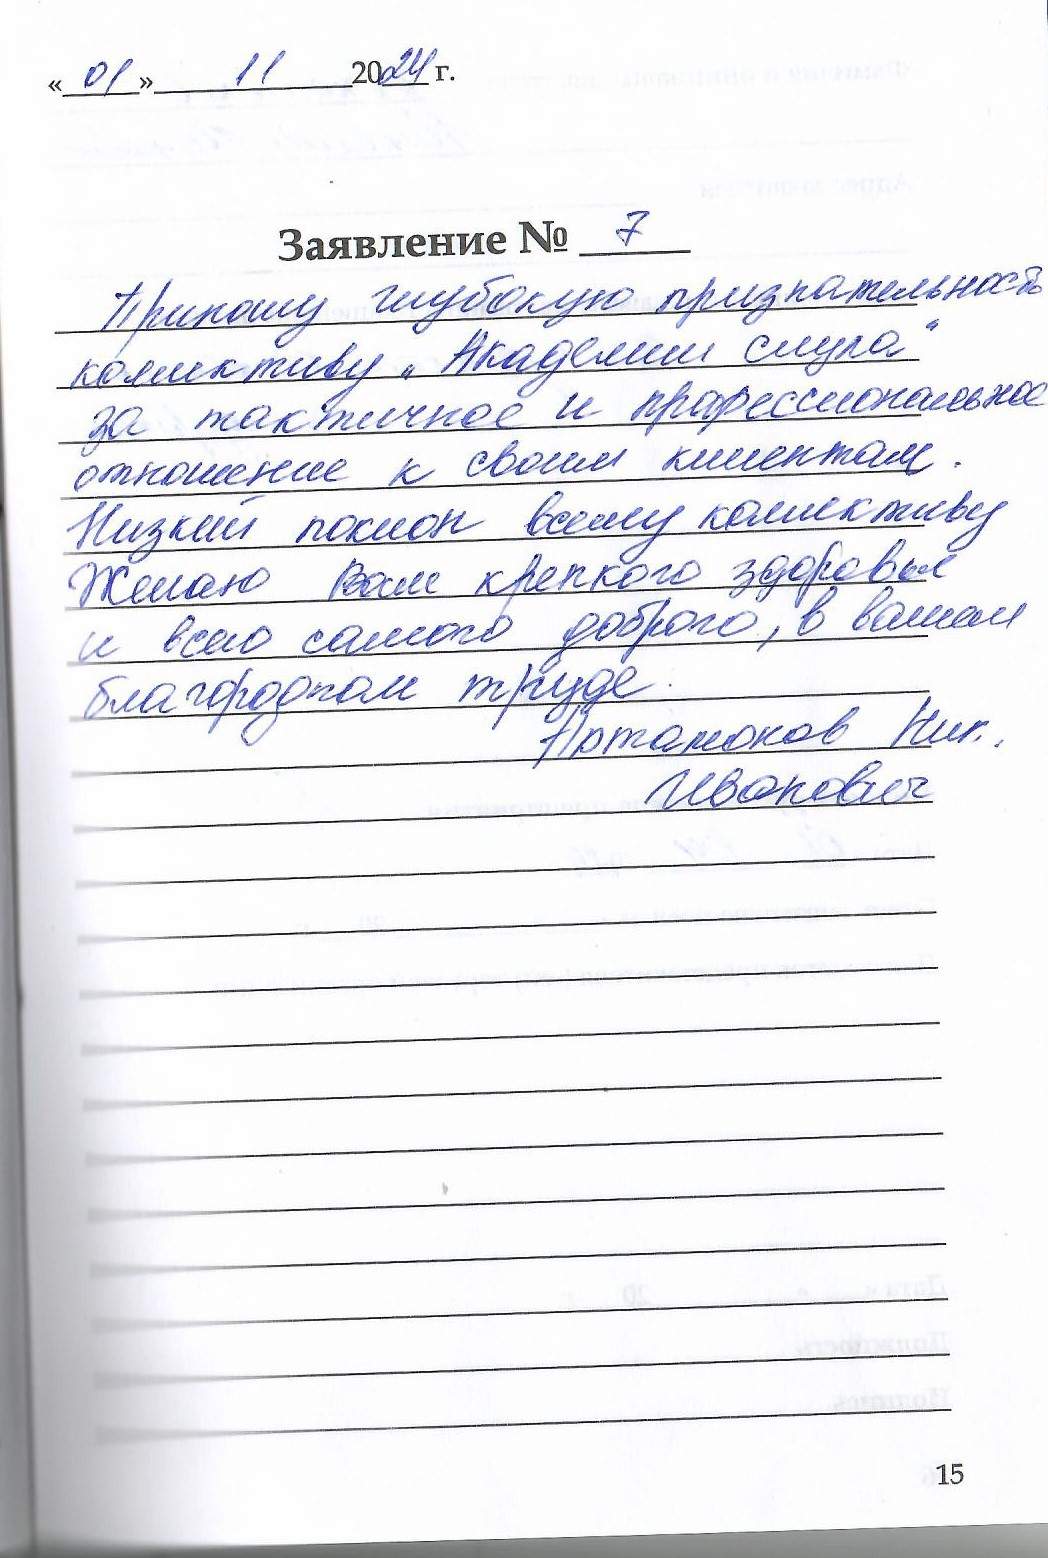 «01» 11 2024 г.
Заявление № 7
Приношу глубокую признательность
коллективу „Академии слуха"
за тактичное и профессиональное
отношение к своим клиентам.
Низкий поклон всему коллективу
Желаю Вам крепкого здоровья
и всего самого доброго, в вашем
благородном труде.
Артамонов Ник.
Иванович
15